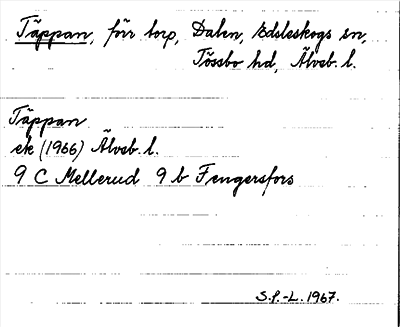 Täppan, förr torp, Dalen, Edsleskogs sn,
Tössbo hd, Älvsb. l.
Täppan
ek (1966) Älvsb. l.
9 C Mellerud 9 b Fengersfors
S.P.-L. 1967.